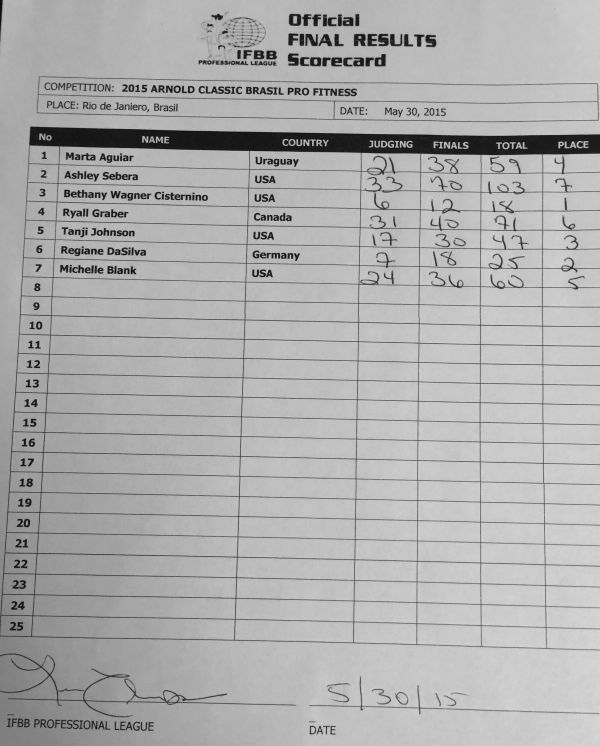 Official
FINAL RESULTS
Scorecard
IFBB
PROFESSIONAL LEAGUE
COMPETITION: 2015 ARNOLD CLASSIC BRASIL PRO FITNESS
PLACE: Rio de Janiero, Brasil DATE: May 30, 2015
No NAME COUNTRY JUDGING FINALS TOTAL PLACE
1 Marta Aguiar Uraguay 21 38 59 4
2 Ashley Sebera USA 33 70 103 7
3 Bethany Wagner Cisternino USA 6 12 18 1
4 Ryall Graber Canada 31 40 71 6
5 Tanji Johnson USA 17 30 47 3
6 Regiane DaSilva Germany 7 18 25 2
7 Michelle Blank USA 24 36 60 5
8
9
10
11
12
13
14
15
16
17
18
19
20
21
22
23
24
25
5/30/15
IFBB PROFESSIONAL LEAGUE DATE